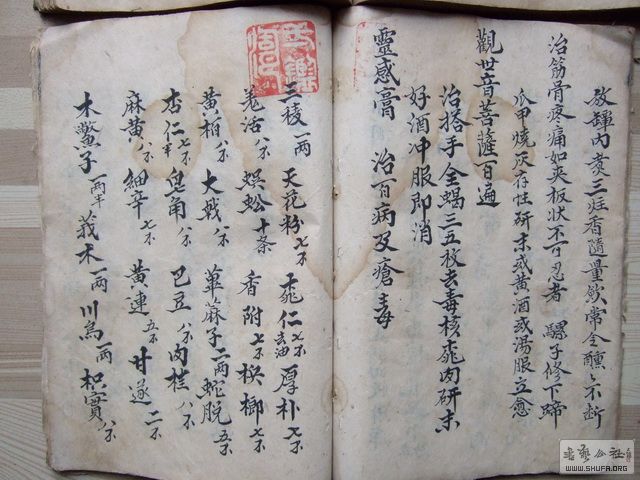 放罈內煑三炷香隨量飲常令醺〻不断
治筋骨疼痛如夾板狀不可忍者 騾子修下蹄
爪甲燒灰存性研末或黄酒或湯服立愈
觀世音菩薩百遍
治搭手全蝎三五枚去毒核桃肉研末
好酒冲服即消
靈感膏 治百病及瘡毒
三稜一兩 天花粉七不 桃仁七不去油 厚朴七不
羌活八不 蜈蚣十条 香附七不 梹榔七不
黄栢八不 大戟八不 萆麻子二兩 蛇脱五不
杏仁七不半 皂角八不 巴豆八不 肉桂八不
麻黄八不 細辛七不 黄連五不 甘遂二不
木鱉子一兩半 莪术一兩 川烏一兩 枳實八不
書藝公社
WWW.SHUFA.ORG